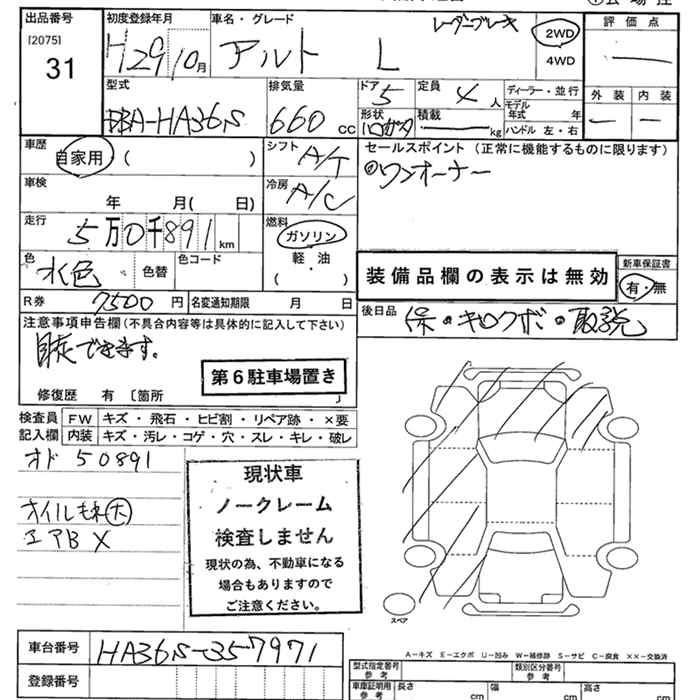 出品番号
[2075]
31
初度登録年月
H29 10月
車名・グレード
アルト L
レーダーブレーキ
2WD
4WD
評価点
外装 内装
型式
DBA-HA36S
排気量
660 cc
ドア
5
定員
4 人
形状
積載
kg
ディーラー・並行
モデル年式 年
ハンドル 左・右
車歴
自家用 ( )
シフト
A/T
セールスポイント (正常に機能するものに限ります)
ワンオーナー
車検
年 月( 日)
冷房
A/C
走行
5万0千891 km
燃料
ガソリン
軽・油
( )
色
水色
色替
色コード
装備品欄の表示は無効
新車保証書
有・無
R券
7500円
名変通知期限 月 日
後日品
保・キロクボ・取説
注意事項申告欄(不具合内容等は具体的に記入して下さい)
自走できます。
第6駐車場置き
修復歴 有 〔箇所 〕
検査員記入欄
FW キズ・飛石・ヒビ割・リペア跡・×要
内装 キズ・汚レ・コゲ・穴・スレ・キレ・破レ
オド 50891
オイルもれ大
エアB X
現状車
ノークレーム
検査しません
現状の為、不動車になる
場合もありますので
ご注意ください。
スペア
A-キズ E-エクボ U-凹み W-補修跡 S-サビ C-腐食 ××-交換済
車台番号
HA36S-357971
登録番号
型式指定番号 参考
類別区分番号 参考
車庫証明用 参考
長さ cm
幅 cm
高さ cm